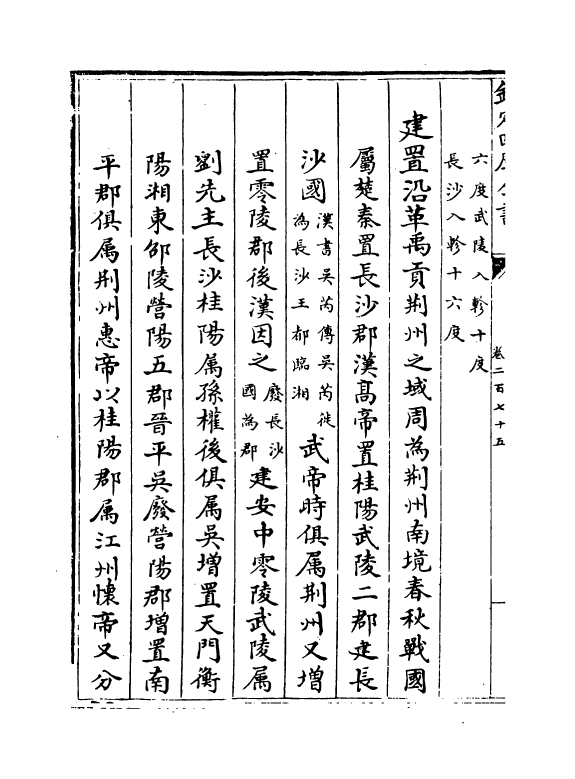 欽定四庫全書
卷二百七十五
六度武陵入軫十度
長沙入軫十六度
建置沿革禹貢荆州之域周為荆州南境春秋戰國
屬楚秦置長沙郡漢髙帝置桂陽武陵二郡建長
沙國漢書吳芮傳吳芮徙為長沙王都臨湘武帝時俱属荆州又增
置零陵郡後漢因之廢長沙國為郡建安中零陵武陵属
劉先主長沙桂陽属孫權後俱属吳增置天門衡
陽湘東邵陵營陽五郡晉平吳廢營陽郡增置南
平郡俱属荆州惠帝以桂陽郡属江州懷帝又分